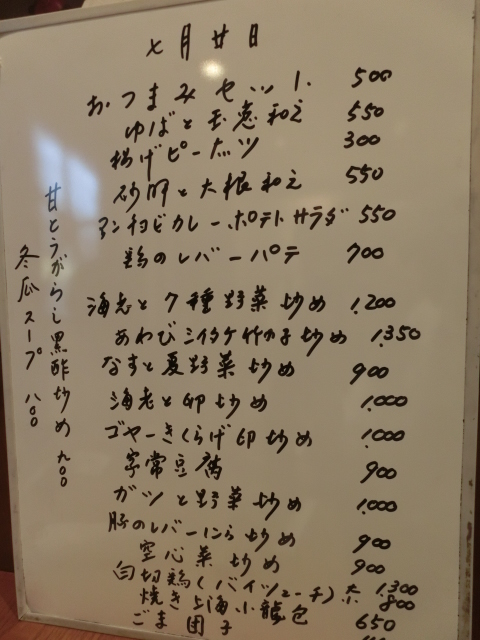 七月廿日
おつまみセット 500
ゆばと玉葱和え 550
揚げピーナッツ 300
砂肝と大根和え 550
アンチョビカレーポテトサラダ 550
鶏のレバーパテ 700
海老と7種野菜炒め 1,200
あわびシイタケ竹の子炒め 1,350
なすと夏野菜炒め 900
海老と卵炒め 1,000
ゴヤーきくらげ卵炒め 1,000
家常豆腐 900
ガツと野菜炒め 1,000
豚のレバーにら炒め 900
空心菜炒め 900
白切鶏(バイツェーチ) 1,300
焼き上海小籠包 800
ごま団子 650
甘とうがらし黒酢炒め 九〇〇
冬瓜スープ 八〇〇